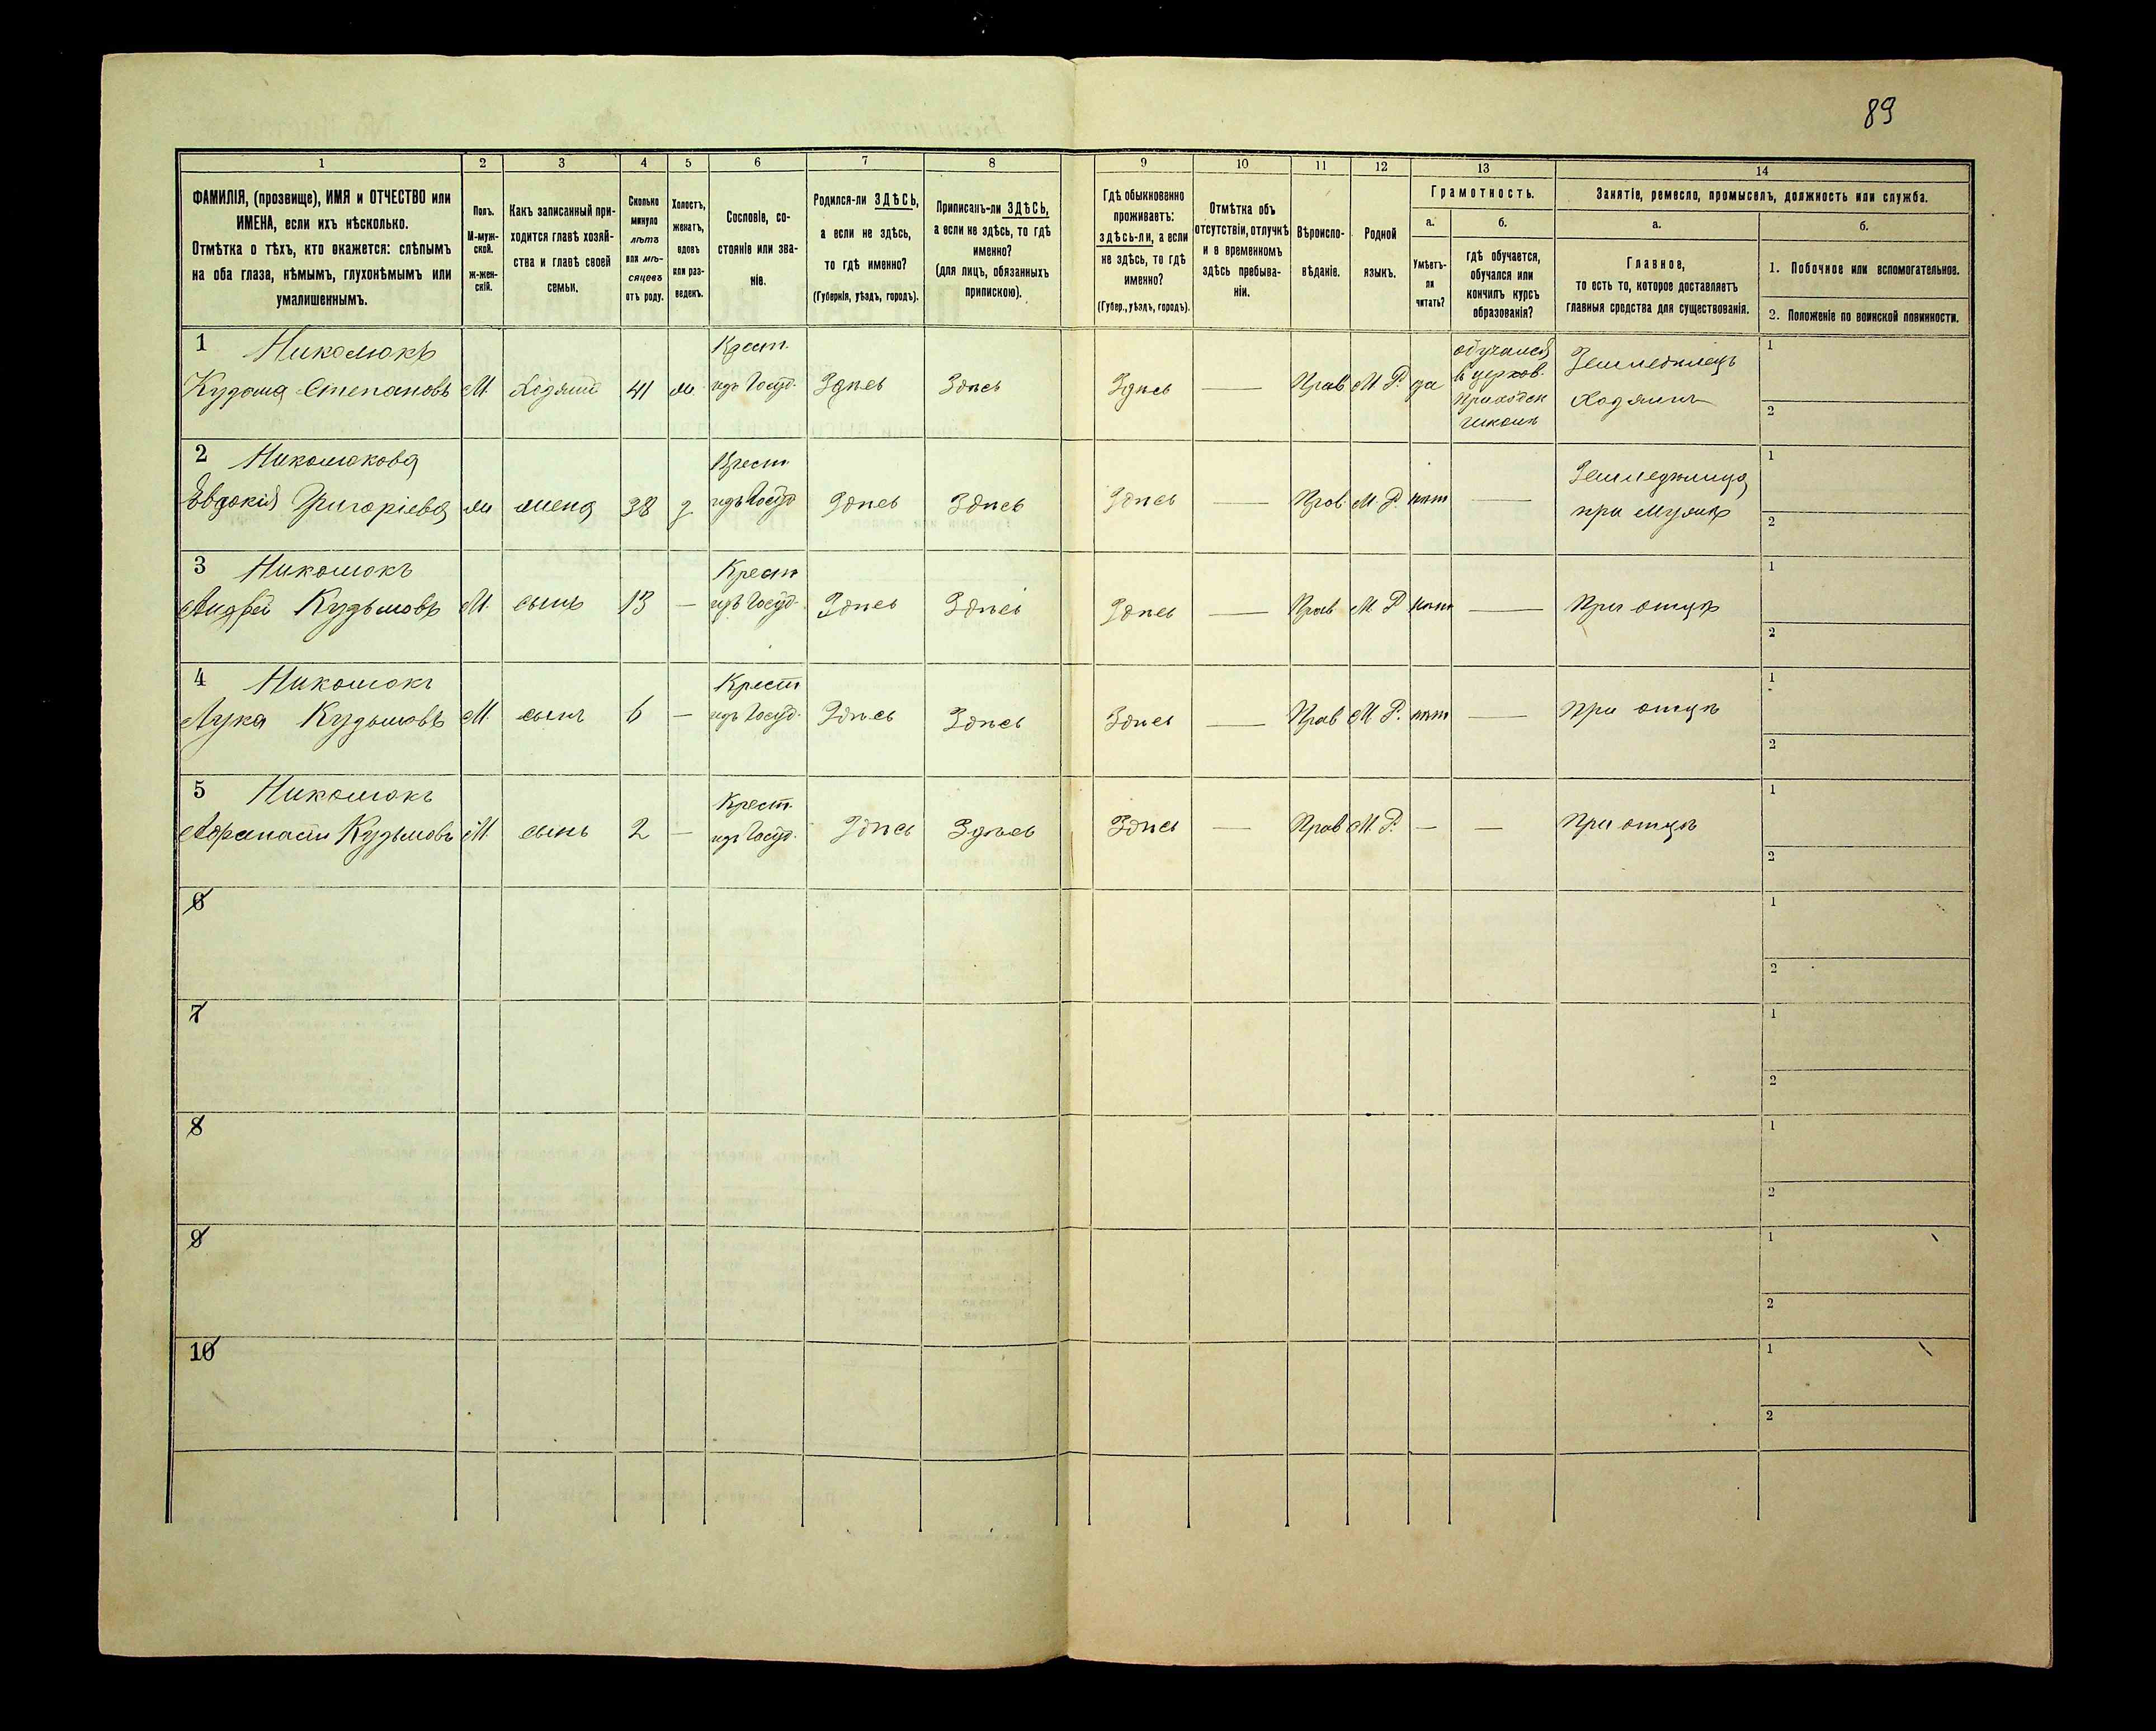 89
1 2 3 4 5 6 7 8 9 10 11 12 13 14
ФАМИЛІЯ, (прозвище), ИМЯ и ОТЧЕСТВО или
ИМЕНА, если ихъ нѣсколько.
Отмѣтка о тѣхъ, кто окажется: слѣпымъ
на оба глаза, нѣмымъ, глухонѣмымъ или
умалишеннымъ.
Полъ.
М-муж-
ской.
Ж-жен-
скій.
Какъ записанный при-
ходится главѣ хозяй-
ства и главѣ своей
семьи.
Сколько
минуло
лѣтъ
или мѣ-
сяцевъ
отъ роду.
Холостъ,
женатъ,
вдовъ
или раз-
веденъ.
Сословіе, со-
стояніе или зва-
ніе.
Родился-ли ЗДѢСЬ,
а если не здѣсь,
то гдѣ именно?
(Губернія, уѣздъ, городъ).
Приписанъ-ли ЗДѢСЬ,
а если не здѣсь, то гдѣ
именно?
(для лицъ, обязанныхъ
припискою).
Гдѣ обыкновенно
проживаетъ:
здѣсь-ли, а если
не здѣсь, то гдѣ
именно?
(Губер., уѣздъ, городъ).
Отмѣтка объ
отсутствіи, отлучкѣ
и о временномъ
здѣсь пребыва-
ніи.
Вѣроиспо-
вѣданіе.
Родной
языкъ.
Грамотность.
а.
Умѣетъ-
ли
читать?
б.
гдѣ обучается,
обучался или
кончилъ курсъ
образованія?
Занятіе, ремесло, промыселъ, должность или служба.
а.
Главное,
то есть то, которое доставляетъ
главныя средства для существованія.
б.
1. Побочное или вспомогательное.
2. Положеніе по воинской повинности.
1 Николюкъ
Кузьма Степановъ М. Хозяинъ 41 ж. Крест.
изъ Госуд. Здѣсь Здѣсь Здѣсь — Прав М. Р. да
обучался
въ церков.
приходск
школѣ
Земледѣлецъ
Хозяинъ
1
2
2 Николюкова
Евдокія Григоріева ж жена 38 з Крест
изъ Госуд Здѣсь Здѣсь Здѣсь — Прав. М. Р. нѣтъ —
Земледѣлица
при мужѣ
1
2
3 Николюкъ
Андрей Кузьмовъ М. сынъ 13 — Крест
изъ Госуд. Здѣсь Здѣсь Здѣсь — Прав М Р нѣтъ — При отцѣ
1
2
4 Николюкъ
Лука Кузьмовъ М. сынъ 6 — Крест
изъ Госуд. Здѣсь Здѣсь Здѣсь — Прав М. Р. нѣтъ — При отцѣ
1
2
5 Николюкъ
Афанасій Кузьмовъ М. сынъ 2 — Крест.
изъ Госуд. Здѣсь Здѣсь Здѣсь — Прав М. Р. — — При отцѣ
1
2
6
1
2
7
1
2
8
1
2
9
1
2
10
1
2